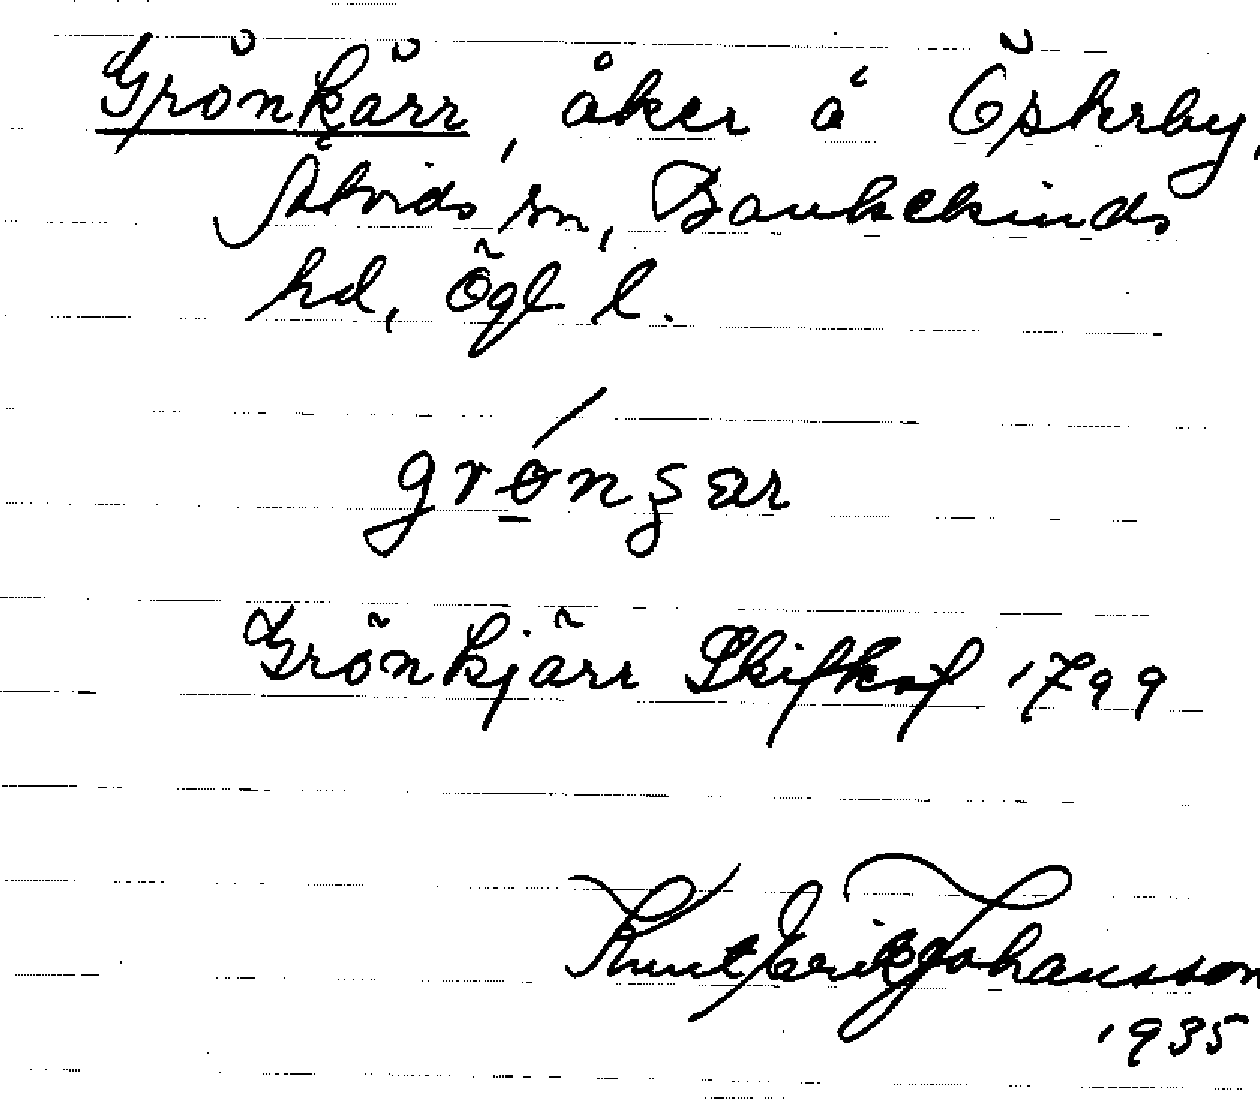 Grönkärr, åker å Öskerby,
Åtvids sn, Bankekinds
hd, Ögl l.
grønʂær
Grönkjärr Skifksf 1799
Knut Erik Johansson
1935